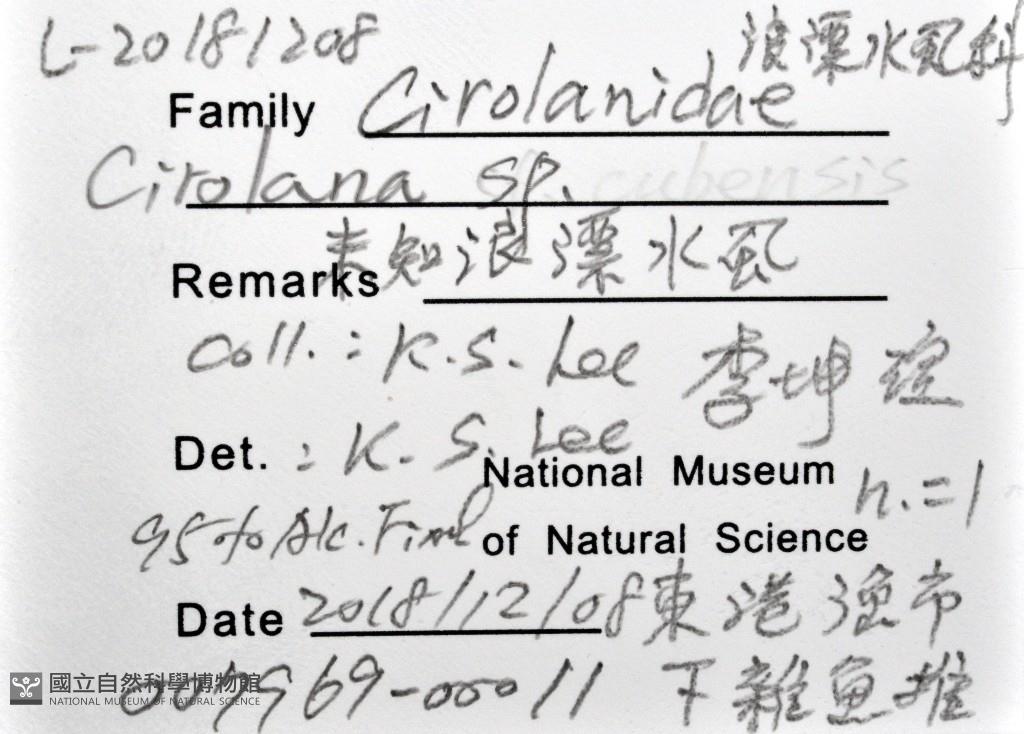 L-20181208 浪漂水虱科
Family Cirolanidae
Cirolana sp. cubensis
未知浪漂水虱
Remarks
coll.: K.S. Lee 李坤瑄
Det.: K. S. Lee
National Museum n.=1
95% Alc. Fixed of Natural Science
Date 2018/12/08 東港漁市
007969-00011 下雜魚堆
國立自然科學博物館
NATIONAL MUSEUM OF NATURAL SCIENCE